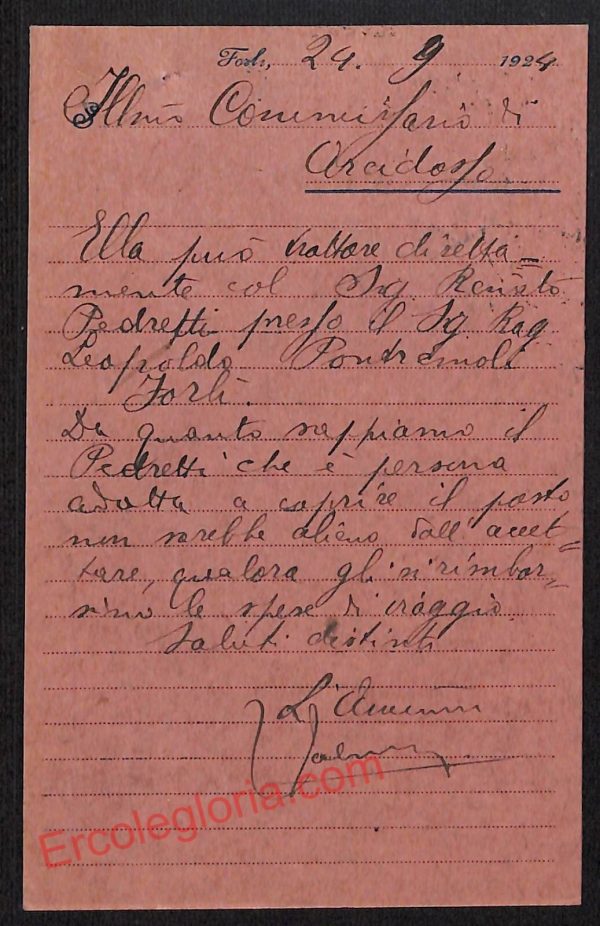 Forlì, 24. 9 1924
Illmo Commissario di
Arcidosso
Ella può trattare diretta-
mente col Sig. Renato
Pedretti presso il Sg Rag
Leopoldo Pontremoli
Forlì.
Da quanto sappiamo il
Pedretti che è persona
adatta a coprire il posto
non sarebbe alieno dall'accet-
tare, qualora gli si rimbor-
sino le spese di viaggio.
Saluti distinti
Ercolegloria.com